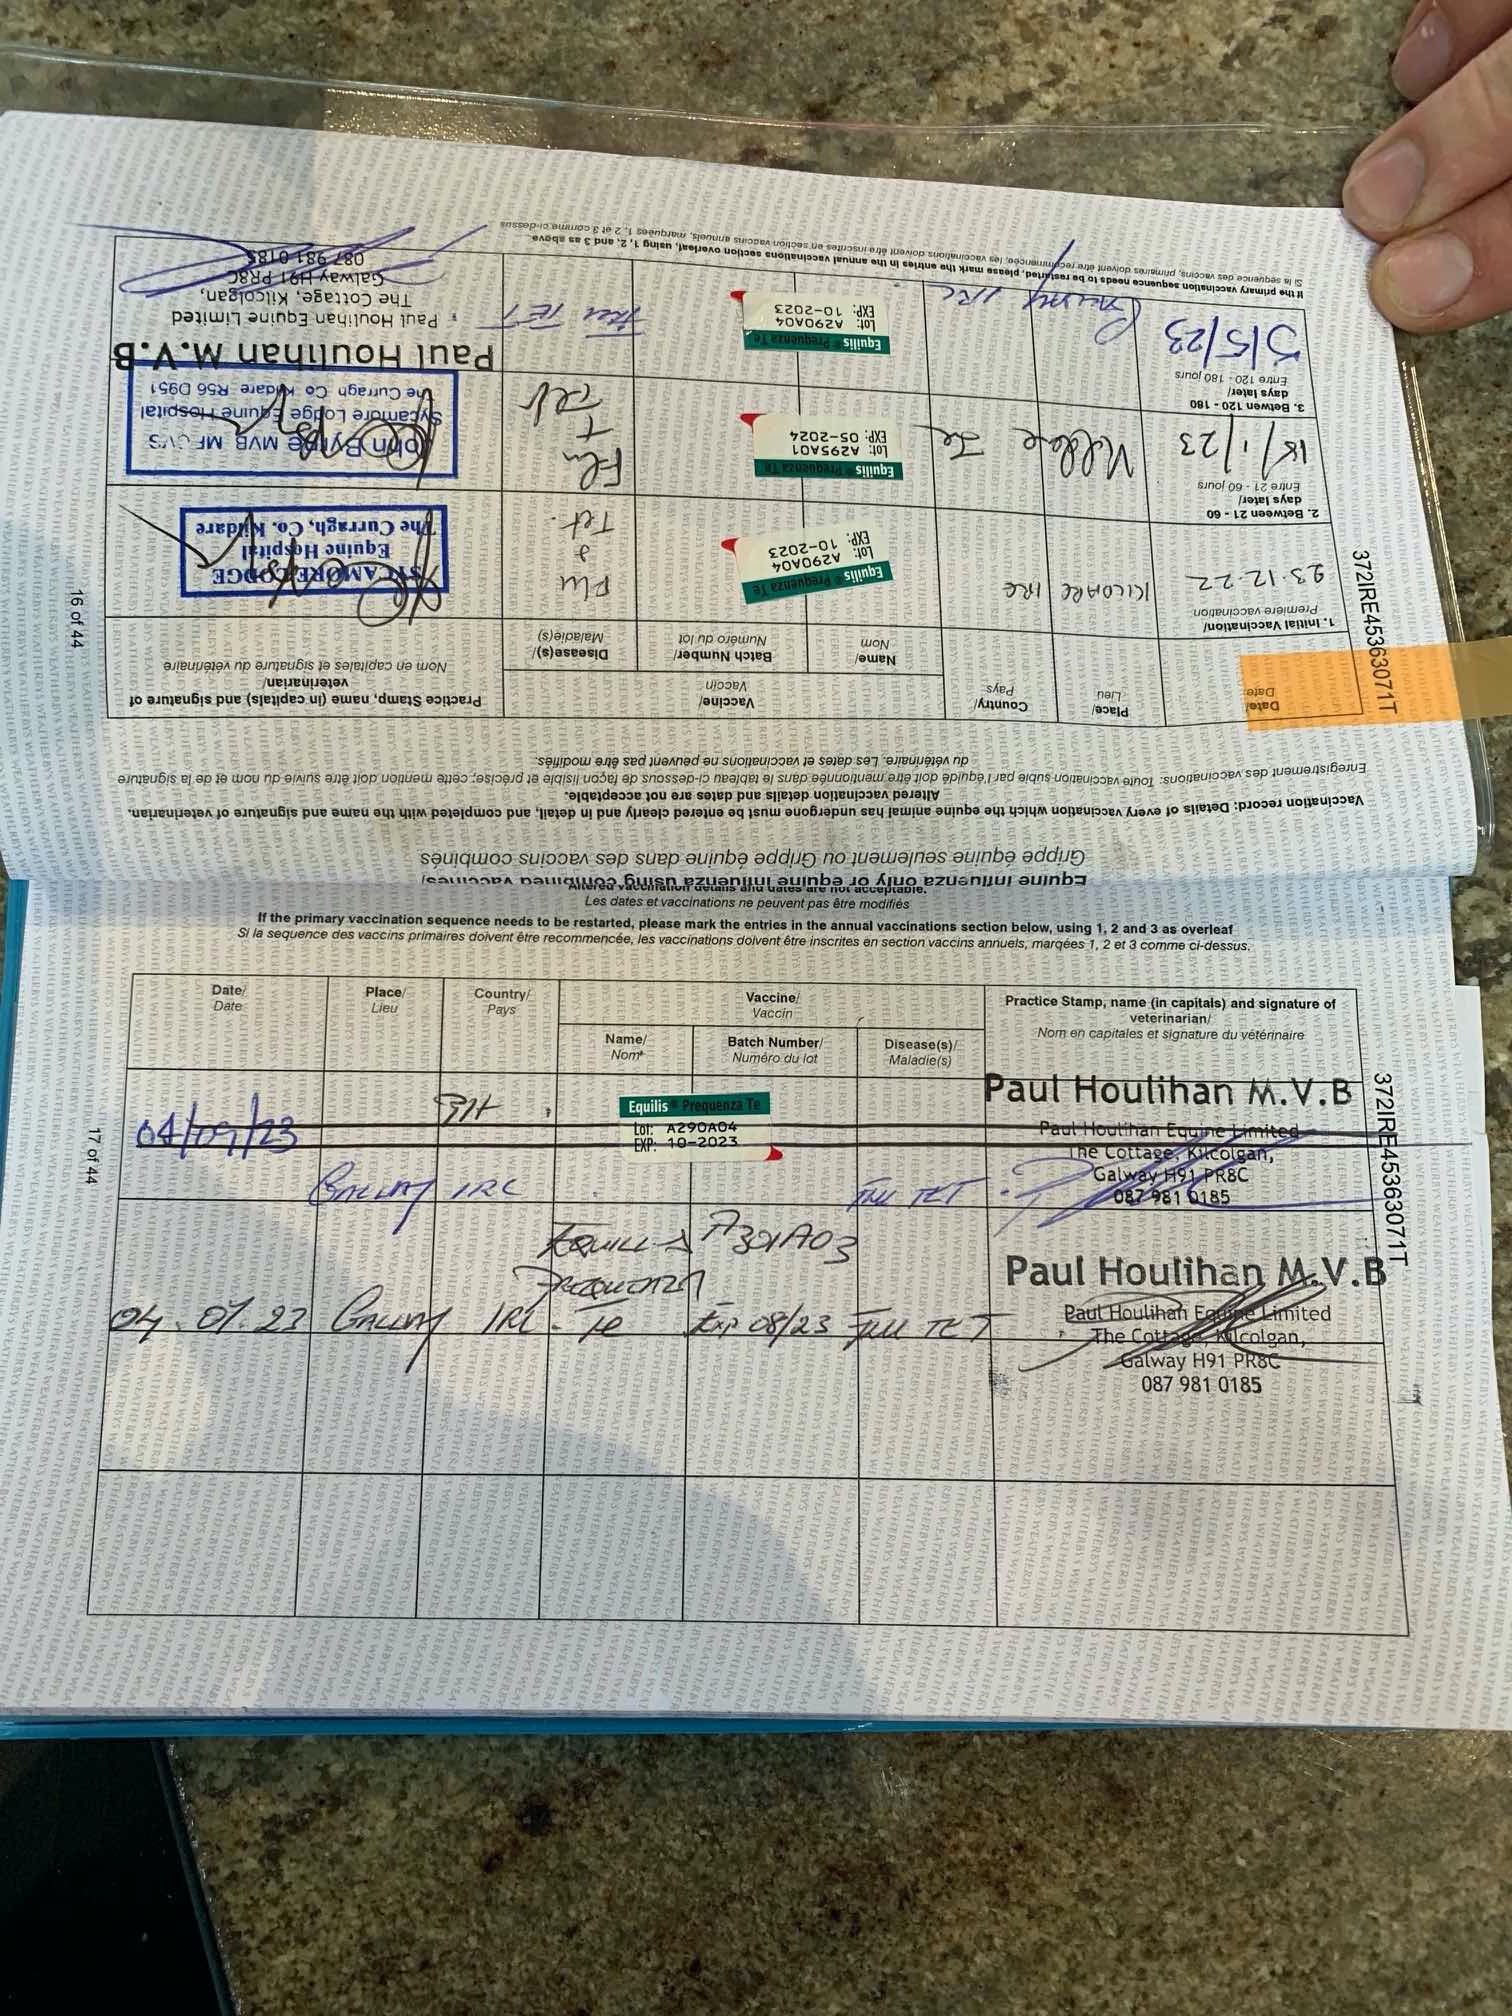 Equine Influenza only or equine influenza using combined vaccines/
Grippe équine seulement ou Grippe équine dans des vaccins combinés
Vaccination record: Details of every vaccination which the equine animal has undergone must be entered clearly and in detail, and completed with the name and signature of veterinarian.
Altered vaccination details and dates are not acceptable.
Enregistrement des vaccinations: Toute vaccination subie par l'équidé doit être mentionnée dans le tableau ci-dessous de façon lisible et précise; cette mention doit être suivie du nom et de la signature
du vétérinaire. Les dates et vaccinations ne peuvent pas être modifiés.
Date/
Date
Place/
Lieu
Country/
Pays
Vaccine/
Vaccin
Name/
Nom
Batch Number/
Numéro du lot
Disease(s)/
Maladie(s)
Practice Stamp, name (in capitals) and signature of
veterinarian/
Nom en capitales et signature du vétérinaire
1. Initial Vaccination/
Première vaccination
23.12.22
KILDARE
IRE
Equilis® Prequenza Te
Lot: A290A04
EXP: 10-2023
Flu
&
Tet.
SYCAMORE LODGE
Equine Hospital
The Curragh, Co. Kildare
2. Between 21 - 60
days later/
Entre 21 - 60 jours
18/1/23
Kildare
Ire
Equilis® Prequenza Te
Lot: A295A01
EXP: 05-2024
Flu
+
Tet
John Byrne MVB MRCVS
Sycamore Lodge Equine Hospital
The Curragh Co Kildare R56 D951
3. Betwen 120 - 180
days later/
Entre 120 - 180 jours
5/5/23
Galway
IRE
Equilis® Prequenza Te
Lot: A290A04
EXP: 10-2023
Flu TET
Paul Houlihan M.V.B
Paul Houlihan Equine Limited
The Cottage, Kilcolgan,
Galway H91 PR8C
087 981 0185
If the primary vaccination sequence needs to be restarted, please mark the entries in the annual vaccinations section overleaf, using 1, 2, and 3 as above.
Si la sequence des vaccins, primaires doivent être recommencée, les vaccinations doivent être inscrites en section vaccins annuels, marquées 1, 2 et 3 comme ci-dessus
16 of 44
372IRE45363071T
Altered vaccination details and dates are not acceptable.
Les dates et vaccinations ne peuvent pas être modifiés
If the primary vaccination sequence needs to be restarted, please mark the entries in the annual vaccinations section below, using 1, 2 and 3 as overleaf
Si la sequence des vaccins primaires doivent être recommencée, les vaccinations doivent être inscrites en section vaccins annuels, marqées 1, 2 et 3 comme ci-dessus.
Date/
Date
Place/
Lieu
Country/
Pays
Vaccine/
Vaccin
Name/
Nom
Batch Number/
Numéro du lot
Disease(s)/
Maladie(s)
Practice Stamp, name (in capitals) and signature of
veterinarian/
Nom en capitales et signature du vétérinaire
GALWAY
IRE
Equilis® Prequenza Te
Lot: A290A04
EXP: 10-2023
FLU TET
Paul Houlihan M.V.B
Paul Houlihan Equine Limited
The Cottage, Kilcolgan,
Galway H91 PR8C
087 981 0185
04.07.23
GALWAY
IRE
EQUILIS
PREQUENZA
Te
A301A03
Exp 08/23
FLU TET
Paul Houlihan M.V.B
Paul Houlihan Equine Limited
The Cottage, Kilcolgan,
Galway H91 PR8C
087 981 0185
17 of 44
372IRE45363071T